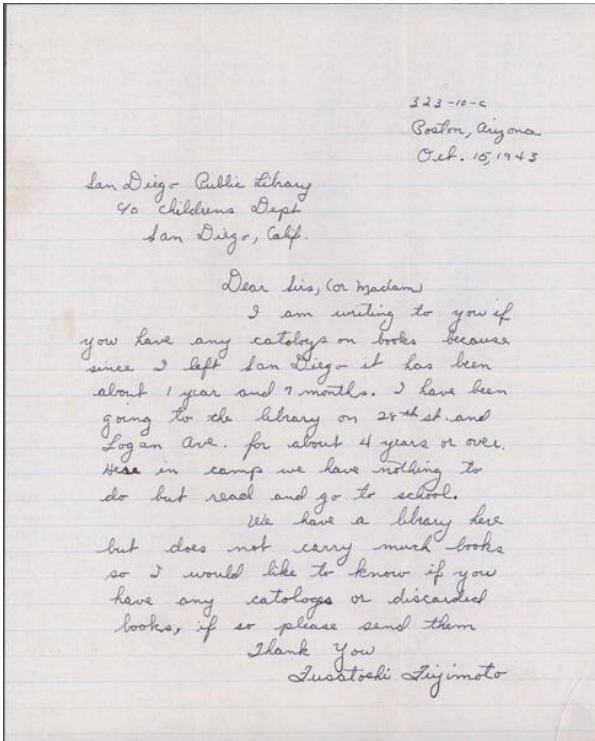 323-10-C
Poston, Arizona
Oct. 15, 1943
San Diego Public Library
c/o childrens Dept
San Diego, Calif.
Dear Sirs, (or Madam)
I am writing to you if
you have any catologs on books because
since I left San Diego it has been
about 1 year and 7 months. I have been
going to the library on 28th st. and
Logan Ave. for about 4 years or over.
Here in camp we have nothing to
do but read and go to school.
We have a library here
but does not carry much books
so I would like to know if you
have any catologs or discarded
books, if so please send them
Thank You
Fusatoshi Fujimoto